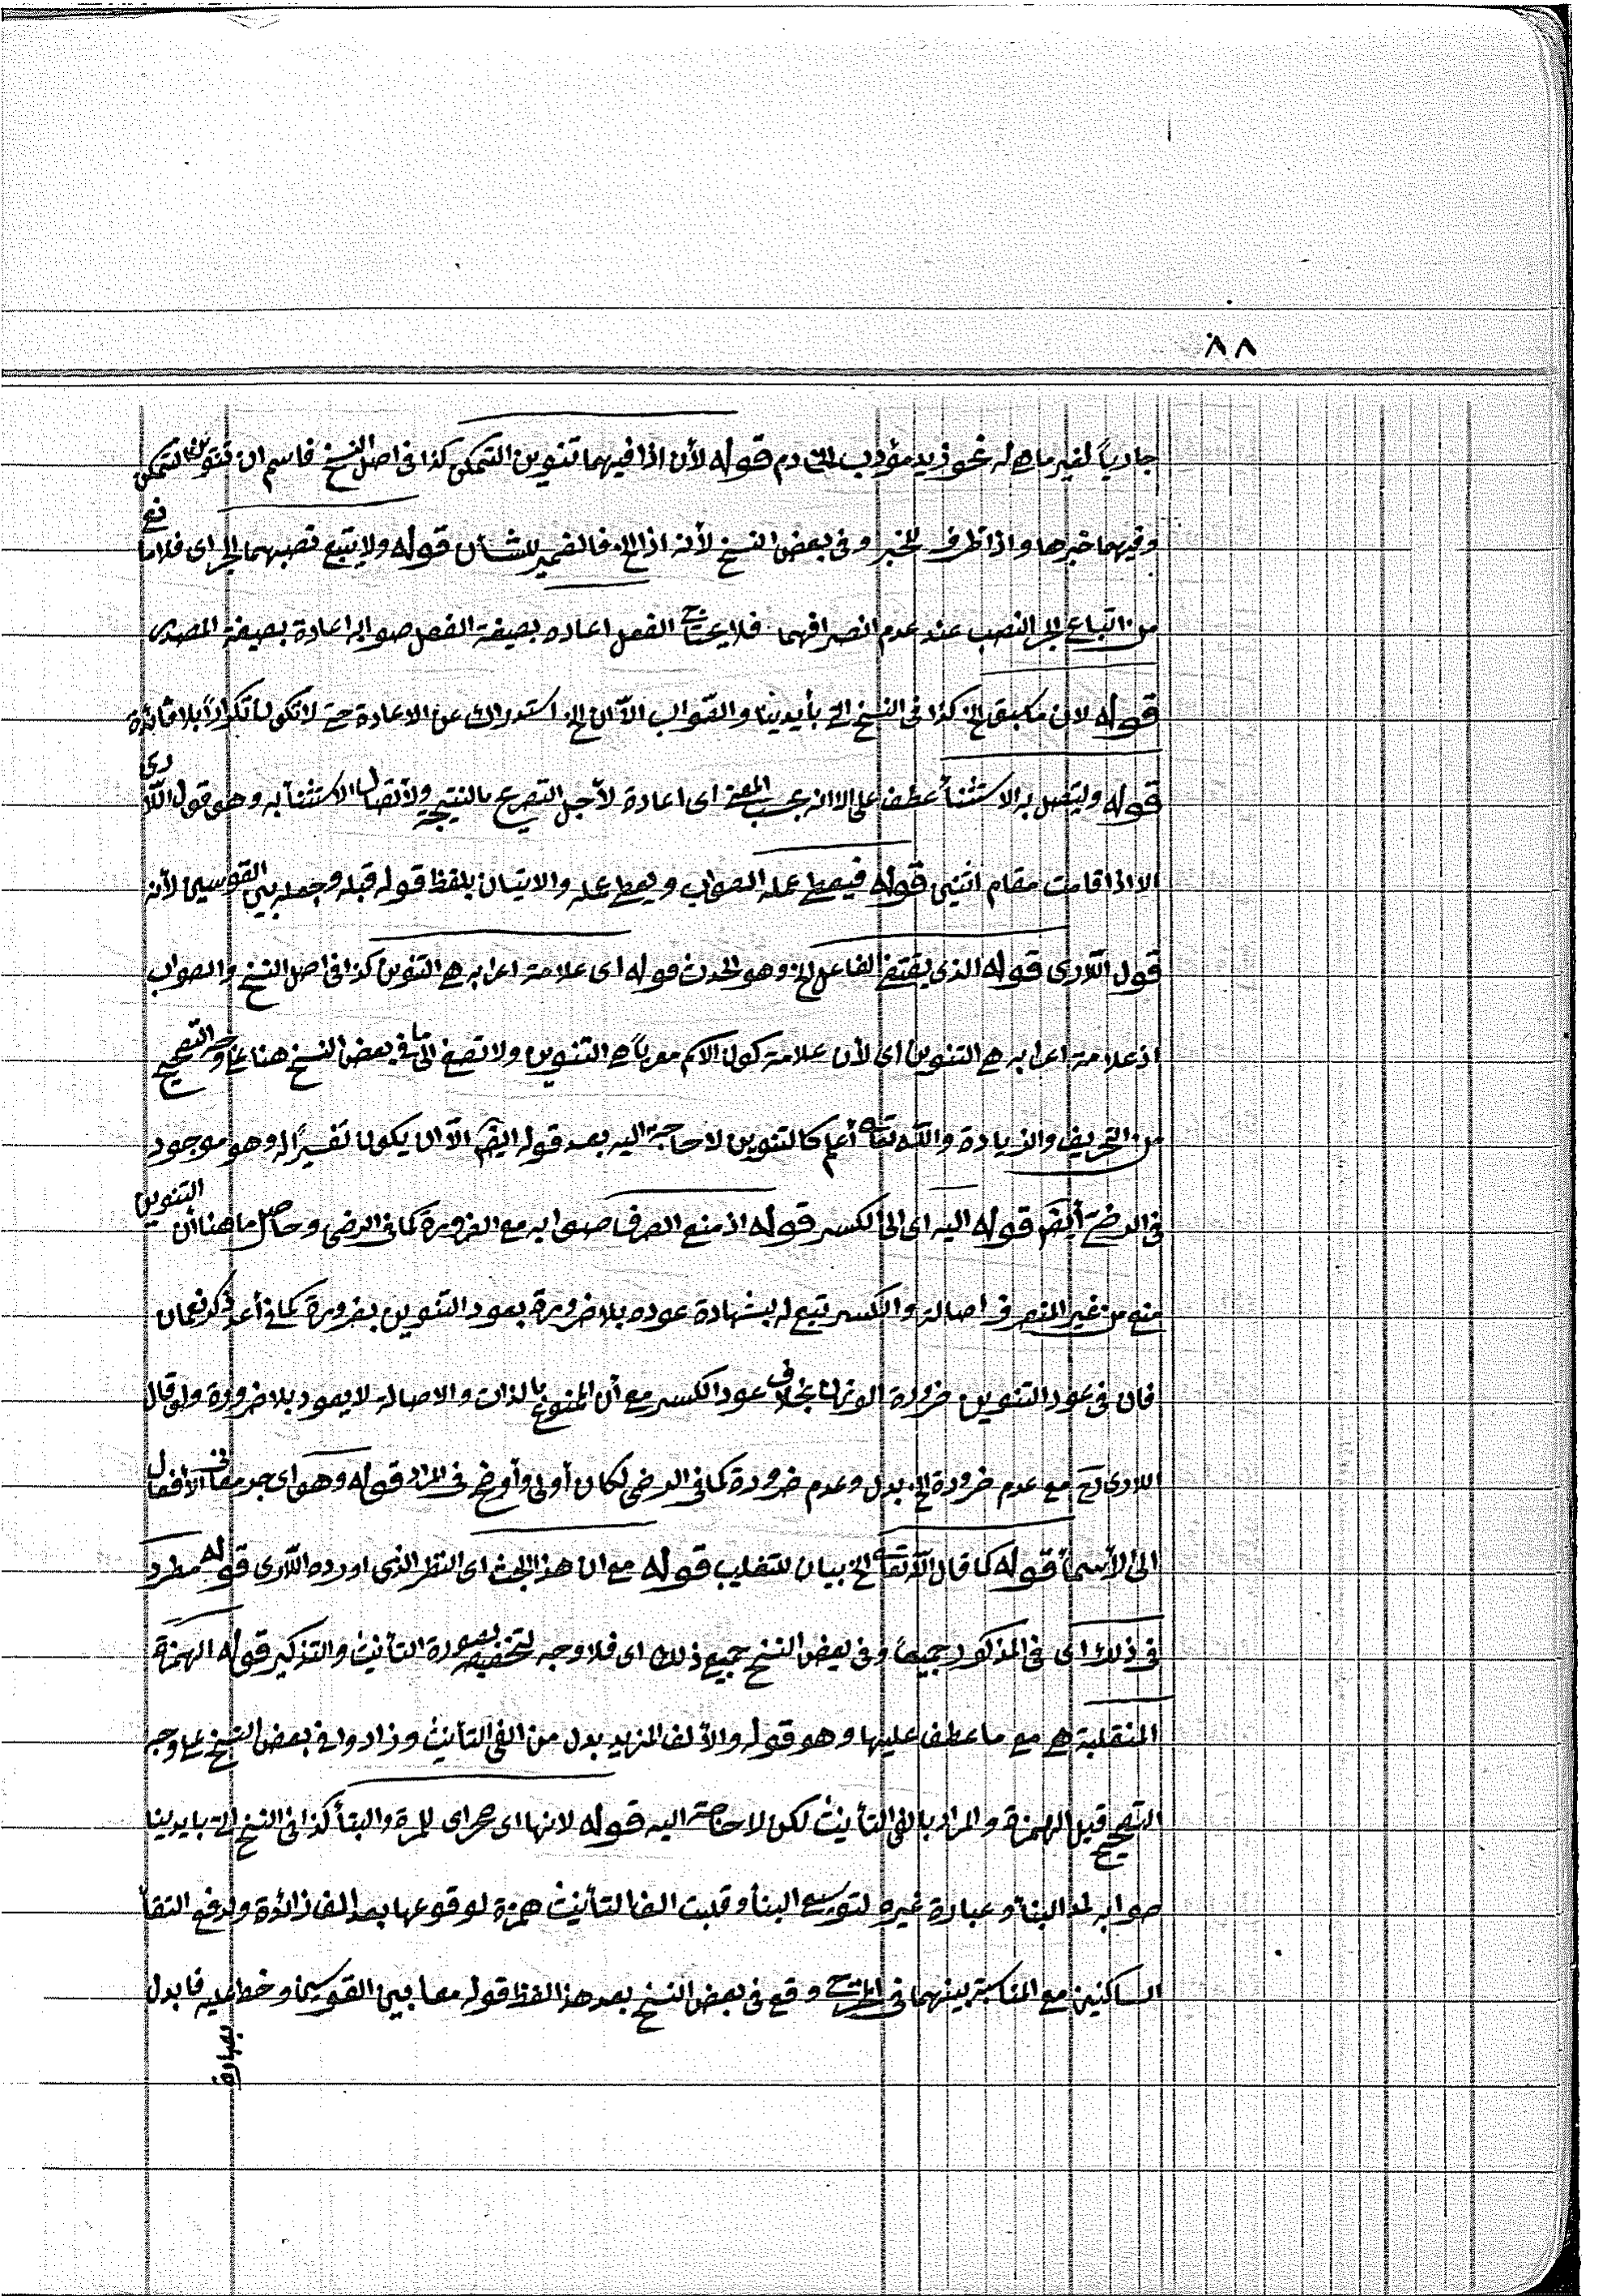 ٨٨
جارياً لغير ما هى له نحو زيد مؤدب الخادم قوله لأن اذا فيهما تنوين التمكن كذا فى اصل النسخ فاسم ان تنوين التمكن
وفيهما خبرها واذا ظرف للخبر وفى بعض النسخ لأنه اذا الخ فالضمير للشأن قوله ولا يتبع نصبهما الجر اى فلا مانع
من اتباع الجر النصب عند عدم انصرافهما فلا يحتاج الفعل اعاده بصيغة الفعل صوابه اعادة بصيغة المصدر
قوله لان ما سبق الخ كذا فى النسخ التى بأيدينا والصواب الا ان الخ استدراك عن الاعادة حتى لا تكون تكراراً بلا فائدة
قوله وليتصل به الاستثناء عطف على الا انه بحسب المعنى اى اعادة لأجل التصريح بالنتيجة ولاتصال الاستثناء به وهو قول اللارى
الا اذا قامت مقام اثنين قوله فيعطى عمله الصواب ويعطى عمله والاتيان بلفظ قوله قبله وجعله بين القوسين لأنه
قول اللارى قوله الذى يقتضى الفاعل الخ وهو الحدث قوله اى علامة اعرابه هى التنوين كذا فى اصل النسخ والصواب
اذ علامة اعرابه هى التنوين اى لأن علامة كون الاسم معرباً هى التنوين ولا تصغ الى ما فى بعض النسخ هنا على وجه التصحيح
من التحريف والزيادة والله تعالى أعلم كالتنوين لا حاجة اليه بعد قوله ايضاً الا ان يكون تفسيراً له وهو موجود
فى الرضى أيضاً قوله اليه اى الى الكسر قوله اذ منع الصرف صوابه مع الضرورة كما فى الرضى وحاصل ما هنا أن التنوين
منع من غير المنصرف اصالة والكسر تبع له بشهادة عوده بلا ضرورة بعود التنوين بضرورة كما فى أعد ذكر نعمان
فان فى عود التنوين ضرورة الوزن بخلاف عود الكسر مع أن الممنوع بالذات والاصالة لا يعود بلا ضرورة ولو قال
اللارى مع عدم ضرورة الخ بدل وعدم ضرورة كما فى الرضى لكان أولى وأوضح فى المراد قوله وهو اى جر معانى الأفعال
الى الأسماء قوله كما قال الله تعالى الخ بيان للتغليب قوله مع ان هذا البحث اى النظر الذى اورده اللارى قوله مطرد
فى ذلك اى فى المذكور جميعاً وفى بعض النسخ جميع ذلك اى فلا وجه لتخصيصه بصورة التأنيث والتذكير قوله الهمزة
المنقلبة هى مع ما عطف عليها وهو قوله والألف المزيد بدل من الفى التأنيث وزادوا فى بعض النسخ على وجه
التصحيح قبل الهمزة والمراد بالفى التأنيث لكن لا حاجة اليه قوله لانها اى صحراى للمرة والبناء كذا فى النسخ التى بايدينا
صوابه لمد البناء وعبارة غيره لتوسيع البناء وقلبت الف التأنيث همزة لوقوعها بعد الف زائدة ولدفع التقاء
الساكنين مع المناسبة بينهما فى المخرج وقع فى بعض النسخ بعد هذا لفظ قوله معا بين القوسين وخط عليه فابدل
بعبارة